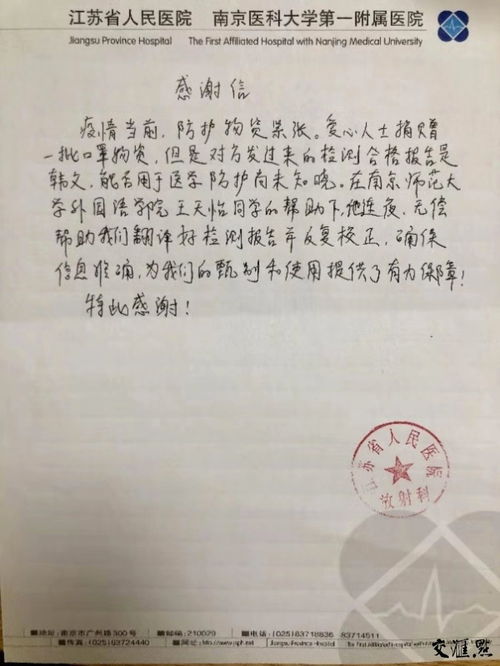 江苏省人民医院 南京医科大学第一附属医院
Jiangsu Province Hospital The First Affiliated Hospital with Nanjing Medical University
感谢信
疫情当前,防护物资紧张。爱心人士捐赠
一批口罩物资,但是对方发过来的检测合格报告是
韩文,能否用于医学防护尚未知晓。在南京师范大
学外国语学院王天怡同学的帮助下,他连夜、无偿
帮助我们翻译好检测报告并反复校正,确保
信息准确,为我们的甄别和使用提供了有力保障!
特此感谢!
江苏省人民医院
放射科
地址:南京市广州路300号 邮编:210029 电话:(025)83718836 83714511
传真:(025)83724440 网址:http://www.jsph.net
交汇点